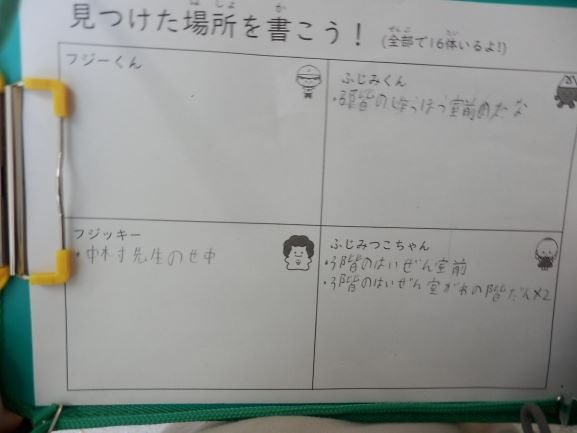 見つけた場所を書こう！(全部で16体いるよ!)
フジーくん
ふじみくん
階の 室前の な
フジッキー
・中村先生のせ中
ふじみつこちゃん
・3階のはいぜん室前
・3階のはいぜん室がわの階だん×2